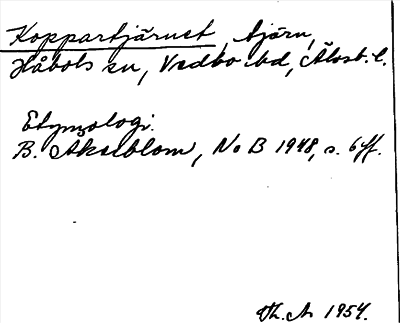 Koppartjärnet, tjärn,
Håbols sn, Vedbo hd, Älvsb. l.
Etymologi.
B. Axelblom, NoB 1948, s. 6 ff.
Th. A. 1954.